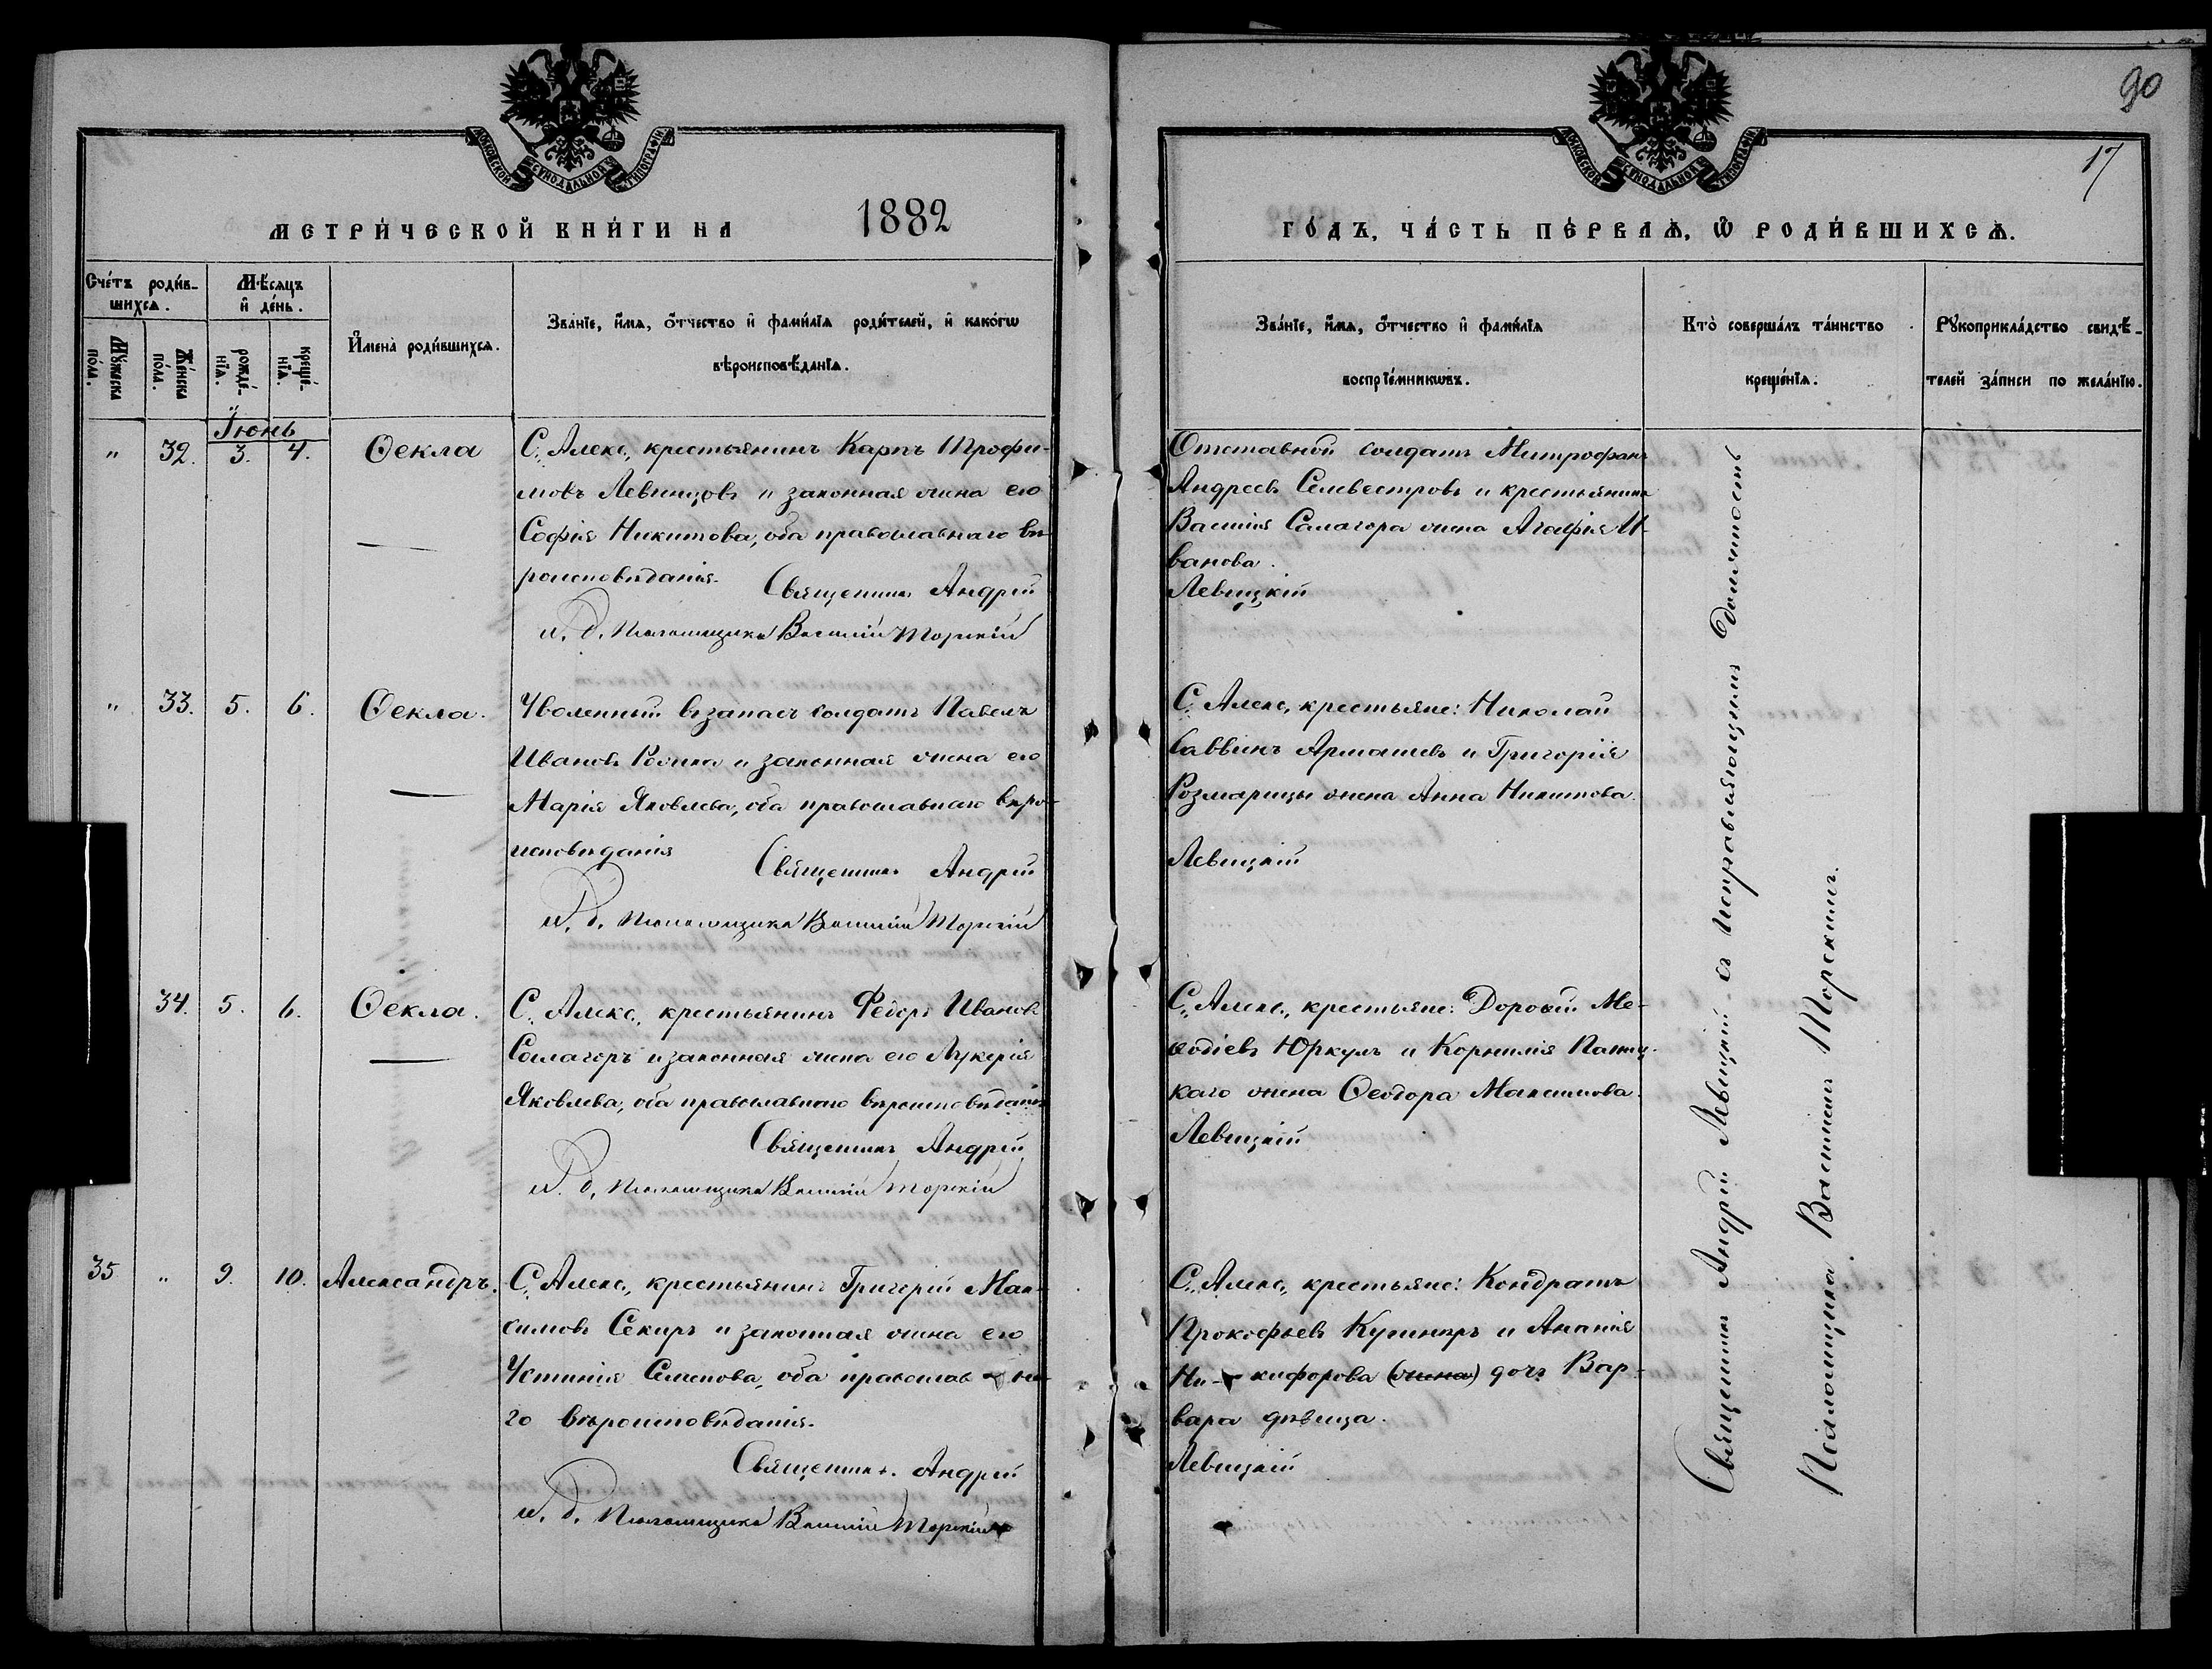 90
17
МОСКОВСКОЙ СѴНОДАЛЬНОЙ ТИПОГРАФІИ
МОСКОВСКОЙ СѴНОДАЛЬНОЙ ТИПОГРАФІИ
МЕТРИ́ЧЕСКОЙ КНИ́ГИ НА 1882
ГО́ДЪ, ЧА́СТЬ ПЕ́РВАѦ, Ѡ҆ РОДИ́ВШИХСѦ.
Сче́тъ роди́в-
шихсѧ.
Мѣ́сяцъ
и҆ де́нь.
Мꙋ́жеска
по́ла.
Же́нска
по́ла.
рожде́-
нїѧ.
креще́-
нїѧ.
И҆мена̀ роди́вшихсѧ.
Зва́нїе, и҆́мѧ, ѻ҆́тчество и҆ фами́лїѧ роди́телей, и҆ како́гѡ
вѣроисповѣ́данїѧ.
Зва́нїе, и҆́мѧ, ѻ҆́тчество и҆ фами́лїѧ
воспрїе́мникѡвъ.
Кто̀ соверша́лъ та́инство
креще́нїѧ.
Рꙋкоприкла́дство свидѣ́-
телей за́писи по жела́нїю.
Іюнь
" 32. 3. 4. Ѳекла
С. Алекс, крестьянинъ Карпъ Трофи-
мовъ Левинцовъ и законная жена его
Софія Никитова, оба православнаго вѣ-
роисповѣданія.
Священникъ Андрей
и. д. Псаломщика Василій Торскій
Отставной солдатъ Митрофанъ
Андреевъ Селвестровъ и крестьянина
Василія Салагора жена Агафія И-
ванова.
Левицкій
" 33. 5. 6. Ѳекла.
Уволенный въ запасъ солдатъ Павелъ
Ивановъ и законная жена его
Марія Яковлева, оба православнаго вѣро-
исповѣданія
Священникъ Андрей
И. д. Псаломщика Василій Торскій
С. Алекс, крестьяне: Николай
Саввинъ Армашевъ и Григорія
Розмарицы жена Анна Никитова.
Левицкій
34. 5. 6. Ѳекла.
С. Алекс, крестьянинъ Ѳедоръ Ивановъ
Салагоръ и законная жена его Лукерія
Яковлева, оба православнаго вѣроисповѣданія
Священникъ Андрей
И. д. Псаломщика Василій Торскій
С. Алекс, крестьяне: Дороѳей Ме-
ѳодіевъ Юркулъ и Корнилія
каго жена Ѳеодора Максимова.
Левицкій
35 " 9. 10. Александръ.
С. Алекс, крестьянинъ Григорій Мак-
симовъ Секиръ и законная жена его
Устинія Семенова, оба православна-
го вѣроисповѣданія.
Священникъ Андрей
И. д. Псаломщика Василій Торскій
С. Алекс, крестьяне: Кондратъ
Прокофьевъ и Ананія
Ни-кифорова (жена) дочь Вар-
вара дѣвица.
Левицкій
Священникъ Андрей Левицкій съ исправляющимъ должность
Псаломщика Василіемъ Торскимъ.